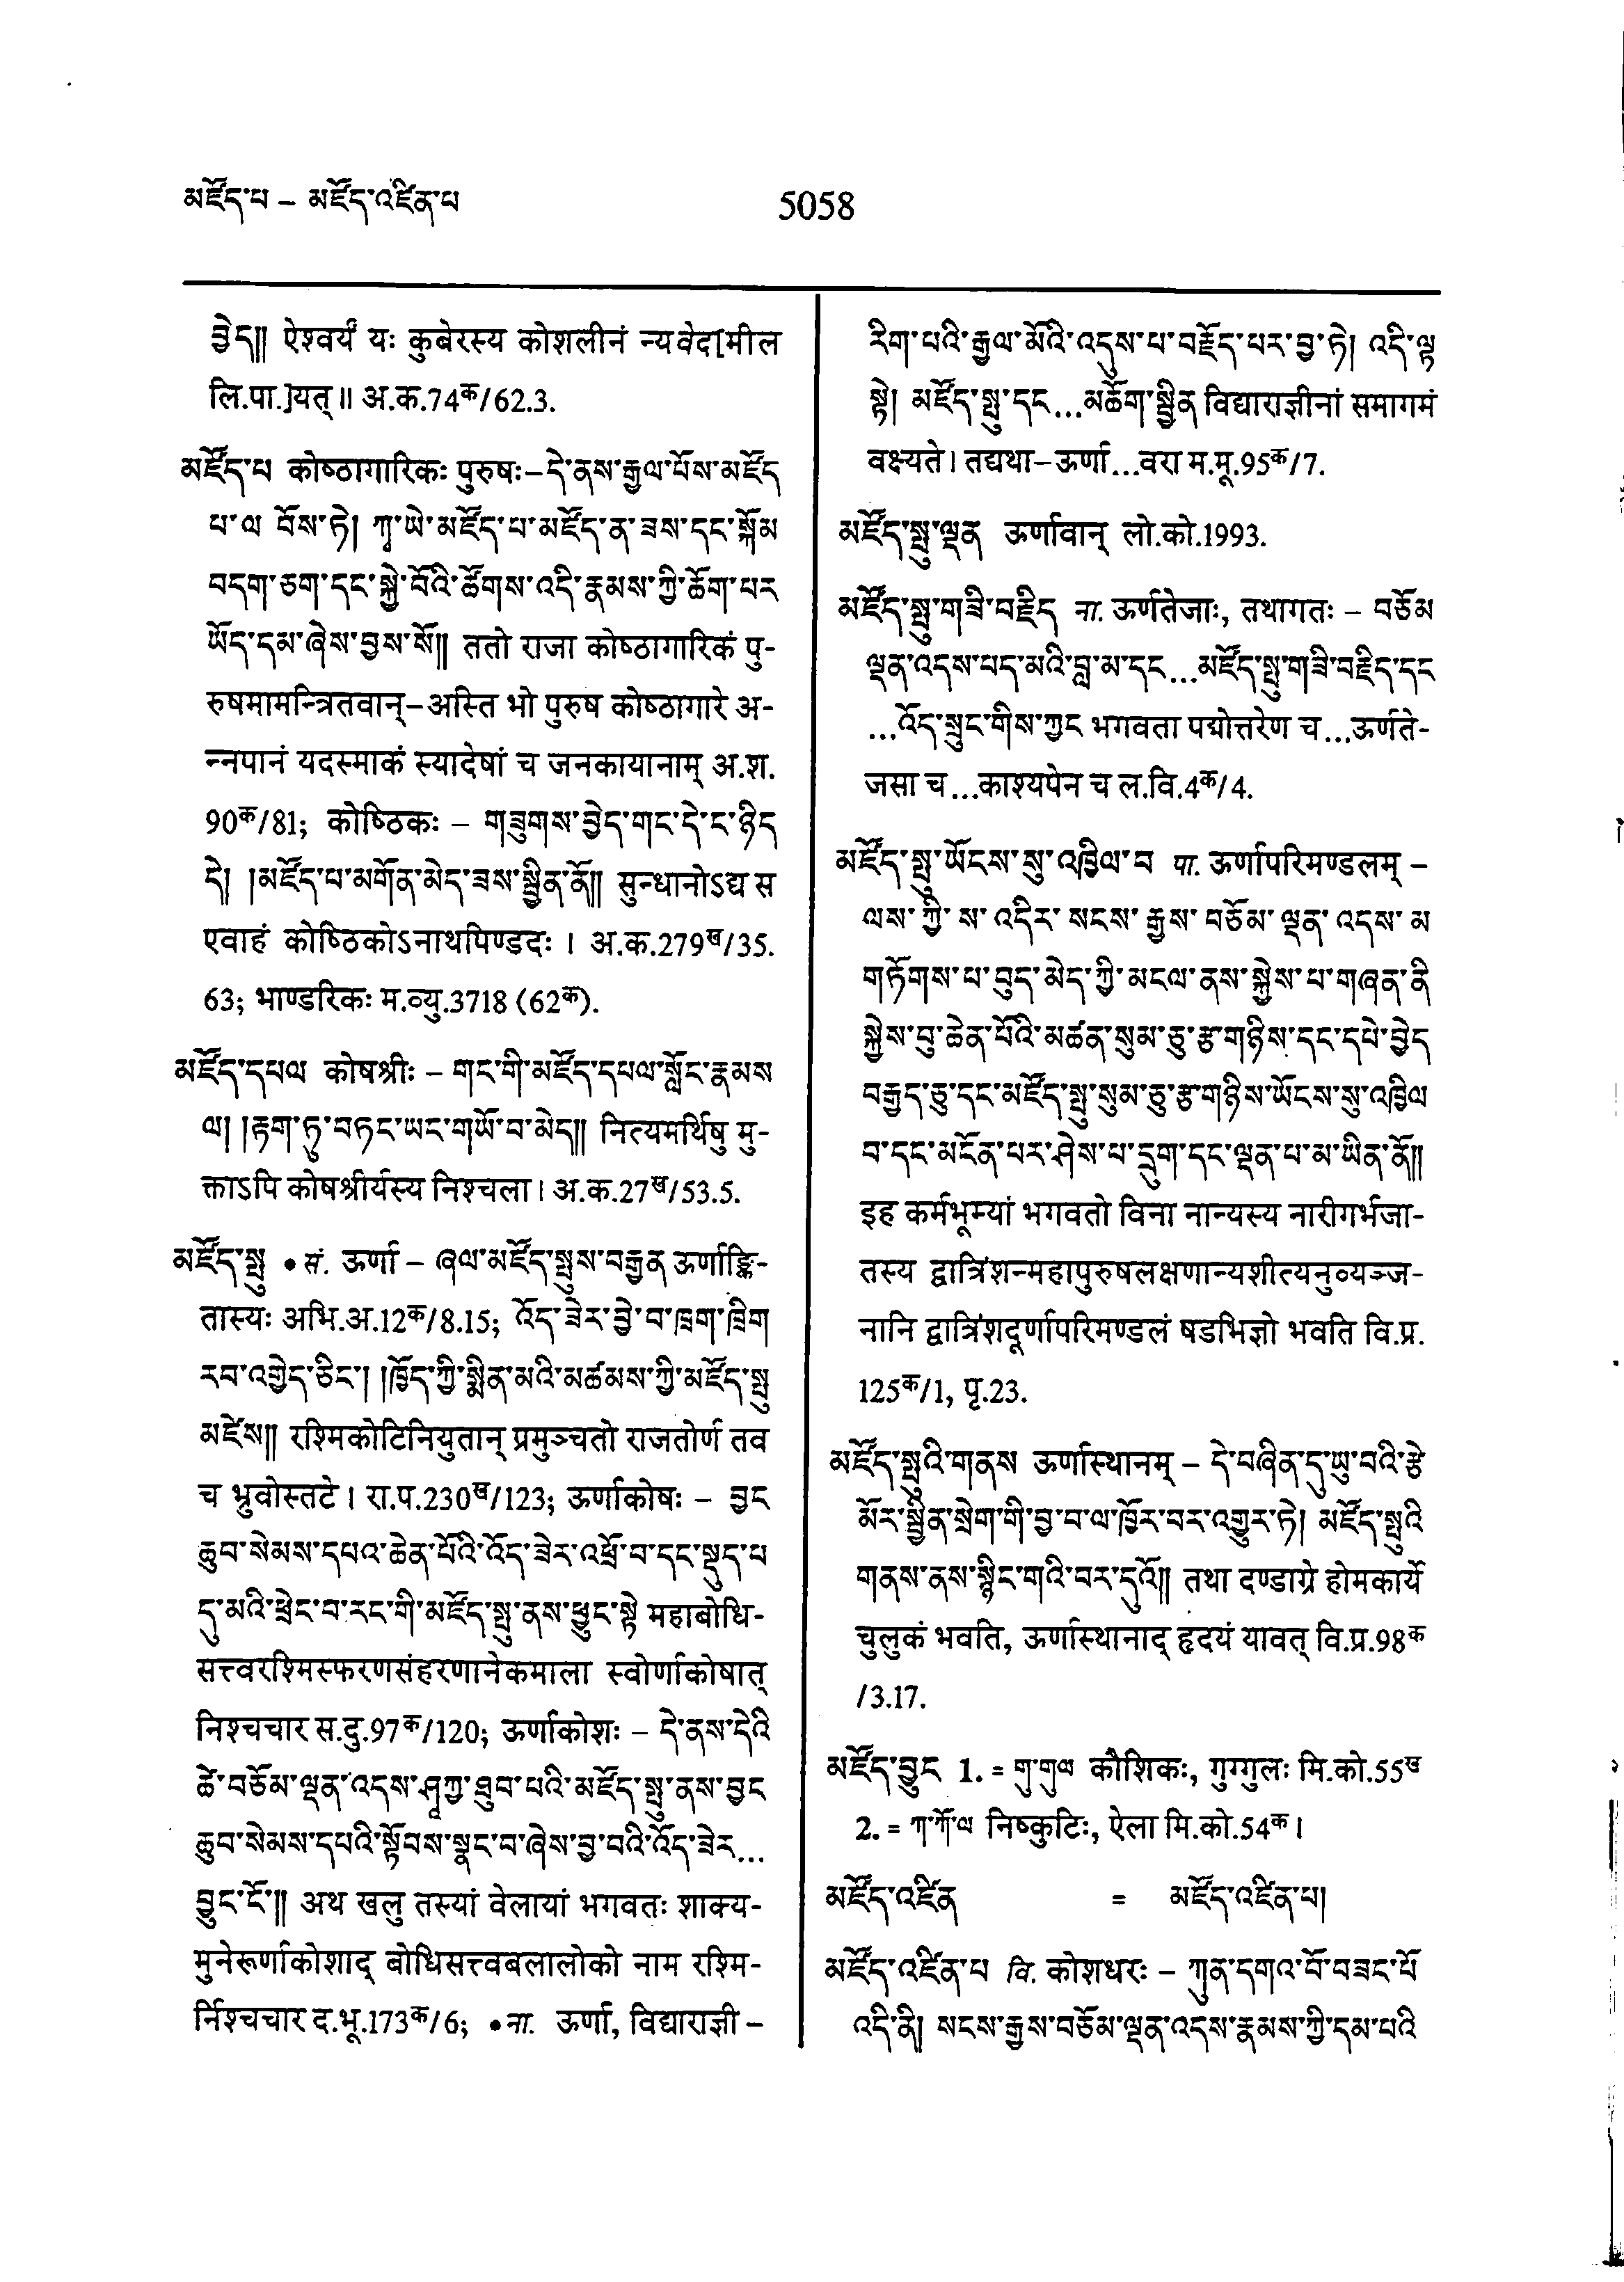 མཛོད་པ – མཛོད་འཛིན་པ
5058
བྱེད།། ऐश्वर्यं यः कुबेरस्य कोशलीनं न्यवेद[मील
लि.पा.]यत् ॥ अ.क.74क/62.3.
མཛོད་པ कोष्ठागारिकः पुरुषः–དེ་ནས་རྒྱལ་པོས་མཛོད
པ་ལ བོས་ཏེ། ཀྭ་ཡེ་མཛོད་པ་མཛོད་ན་ཟས་དང་སྐོམ
བདག་ཅག་དང་སྐྱེ་བོའི་ཚོགས་འདི་རྣམས་ཀྱི་ཆོག་པར
ཡོད་དམ་ཞེས་བྱས་སོ།། ततो राजा कोष्ठागारिकं पु-
रुषमामन्त्रितवान्–अस्ति भो पुरुष कोष्ठागारे अ-
न्नपानं यदस्माकं स्यादेषां च जनकायानाम् अ.श.
90क/81; कोष्ठिकः – གཟུགས་བྱེད་གང་དེ་ང་ཉིད
དེ། །མཛོད་པ་མགོན་མེད་ཟས་སྦྱིན་ནོ།། सुन्धानोऽद्य स
एवाहं कोष्ठिकोऽनाथपिण्डदः । अ.क.279ख/35.
63; भाण्डरिकः म.व्यु.3718 (62क).
མཛོད་དཔལ कोषश्रीः – གང་གི་མཛོད་དཔལ་སློང་རྣམས
ལ། །རྟག་ཏུ་བཏང་ཡང་གཡོ་བ་མེད།། नित्यमर्थिषु मु-
क्ताऽपि कोषश्रीर्यस्य निश्चला । अ.क.27ख/53.5.
མཛོད་སྤུ • सं. ऊर्णा – ཞལ་མཛོད་སྤུས་བརྒྱན ऊर्णाङ्कि-
तास्यः अभि.अ.12क/8.15; འོད་ཟེར་བྱེ་བ་ཁྲག་ཁྲིག
རབ་འགྱེད་ཅིང་། །ཁྱོད་ཀྱི་སྨིན་མའི་མཚམས་ཀྱི་མཛོད་སྤུ
མཛེས།། रश्मिकोटिनियुतान् प्रमुञ्चतो राजतोर्ण तव
च भ्रुवोस्तटे । रा.प.230ख/123; ऊर्णाकोषः – བྱང
ཆུབ་སེམས་དཔའ་ཆེན་པོའི་འོད་ཟེར་འཕྲོ་བ་དང་སྡུད་པ
དུ་མའི་ཕྲེང་བ་རང་གི་མཛོད་སྤུ་ནས་ཕྱུང་སྟེ महाबोधि-
सत्त्वरश्मिस्फरणसंहरणानेकमाला स्वोर्णाकोषात्
निश्चचार स.दु.97क/120; ऊर्णाकोशः – དེ་ནས་དེའི
ཚེ་བཅོམ་ལྡན་འདས་ཤཱཀྱ་ཐུབ་པའི་མཛོད་སྤུ་ནས་བྱང
ཆུབ་སེམས་དཔའི་སྟོབས་སྣང་བ་ཞེས་བྱ་བའི་འོད་ཟེར…
བྱུང་ངོ་།། अथ खलु तस्यां वेलायां भगवतः शाक्य-
मुनेरूर्णाकोशाद् बोधिसत्त्वबलालोको नाम रश्मि-
र्निश्चचार द.भू.173क/6; • ना. ऊर्णा, विद्याराज्ञी –
རིག་པའི་རྒྱལ་མོའི་འདུས་པ་བརྗོད་པར་བྱ་ཏེ། འདི་ལྟ
སྟེ། མཛོད་སྤུ་དང…མཆོག་སྦྱིན विद्याराज्ञीनां समागमं
वक्ष्यते । तद्यथा–ऊर्णा…वरा म.मू.95क/7.
མཛོད་སྤུ་ལྡན ऊर्णावान् लो.को.1993.
མཛོད་སྤུ་གཟི་བརྗིད ना. ऊर्णतेजाः, तथागतः – བཅོམ
ལྡན་འདས་པད་མའི་བླ་མ་དང…མཛོད་སྤུ་གཟི་བརྗིད་དང
…འོད་སྲུང་གིས་ཀྱང भगवता पद्मोत्तरेण च…ऊर्णते-
जसा च…काश्यपेन च ल.वि.4क/4.
མཛོད་སྤུ་ཡོངས་སུ་འཁྱིལ་བ पा. ऊर्णापरिमण्डलम् –
ལས་ཀྱི་ས་འདིར་སངས་རྒྱས་བཅོམ་ལྡན་འདས་མ
གཏོགས་པ་བུད་མེད་ཀྱི་མངལ་ནས་སྐྱེས་པ་གཞན་ནི
སྐྱེས་བུ་ཆེན་པོའི་མཚན་སུམ་ཅུ་རྩ་གཉིས་དང་དཔེ་བྱེད
བརྒྱད་ཅུ་དང་མཛོད་སྤུ་སུམ་ཅུ་རྩ་གཉིས་ཡོངས་སུ་འཁྱིལ
བ་དང་མངོན་པར་ཤེས་པ་དྲུག་དང་ལྡན་པ་མ་ཡིན་ནོ།།
इह कर्मभूम्यां भगवतो विना नान्यस्य नारीगर्भजा-
तस्य द्वात्रिंशन्महापुरुषलक्षणान्यशीत्यनुव्यञ्ज-
नानि द्वात्रिंशदूर्णापरिमण्डलं षडभिज्ञो भवति वि.प्र.
125क/1, पृ.23.
མཛོད་སྤུའི་གནས ऊर्णास्थानम् – དེ་བཞིན་དུ་ཡུ་བའི་རྩེ
མོར་སྦྱིན་སྲེག་གི་བྱ་བ་ལ་ཁྱོར་བར་འགྱུར་ཏེ། མཛོད་སྤུའི
གནས་ནས་སྙིང་གའི་བར་དུའོ།། तथा दण्डाग्रे होमकार्ये
चुलुकं भवति, ऊर्णास्थानाद् हृदयं यावत् वि.प्र.98क
/3.17.
མཛོད་བྱུང 1. = གུ་གུལ कौशिकः, गुग्गुलः मि.को.55ख
2. = ཀ་ཀོ་ལ निष्कुटिः, ऐला मि.को.54क ।
མཛོད་འཛིན = མཛོད་འཛིན་པ།
མཛོད་འཛིན་པ वि. कोशधरः – ཀུན་དགའ་བོ་བཟང་པོ
འདི་ནི། སངས་རྒྱས་བཅོམ་ལྡན་འདས་རྣམས་ཀྱི་དམ་པའི